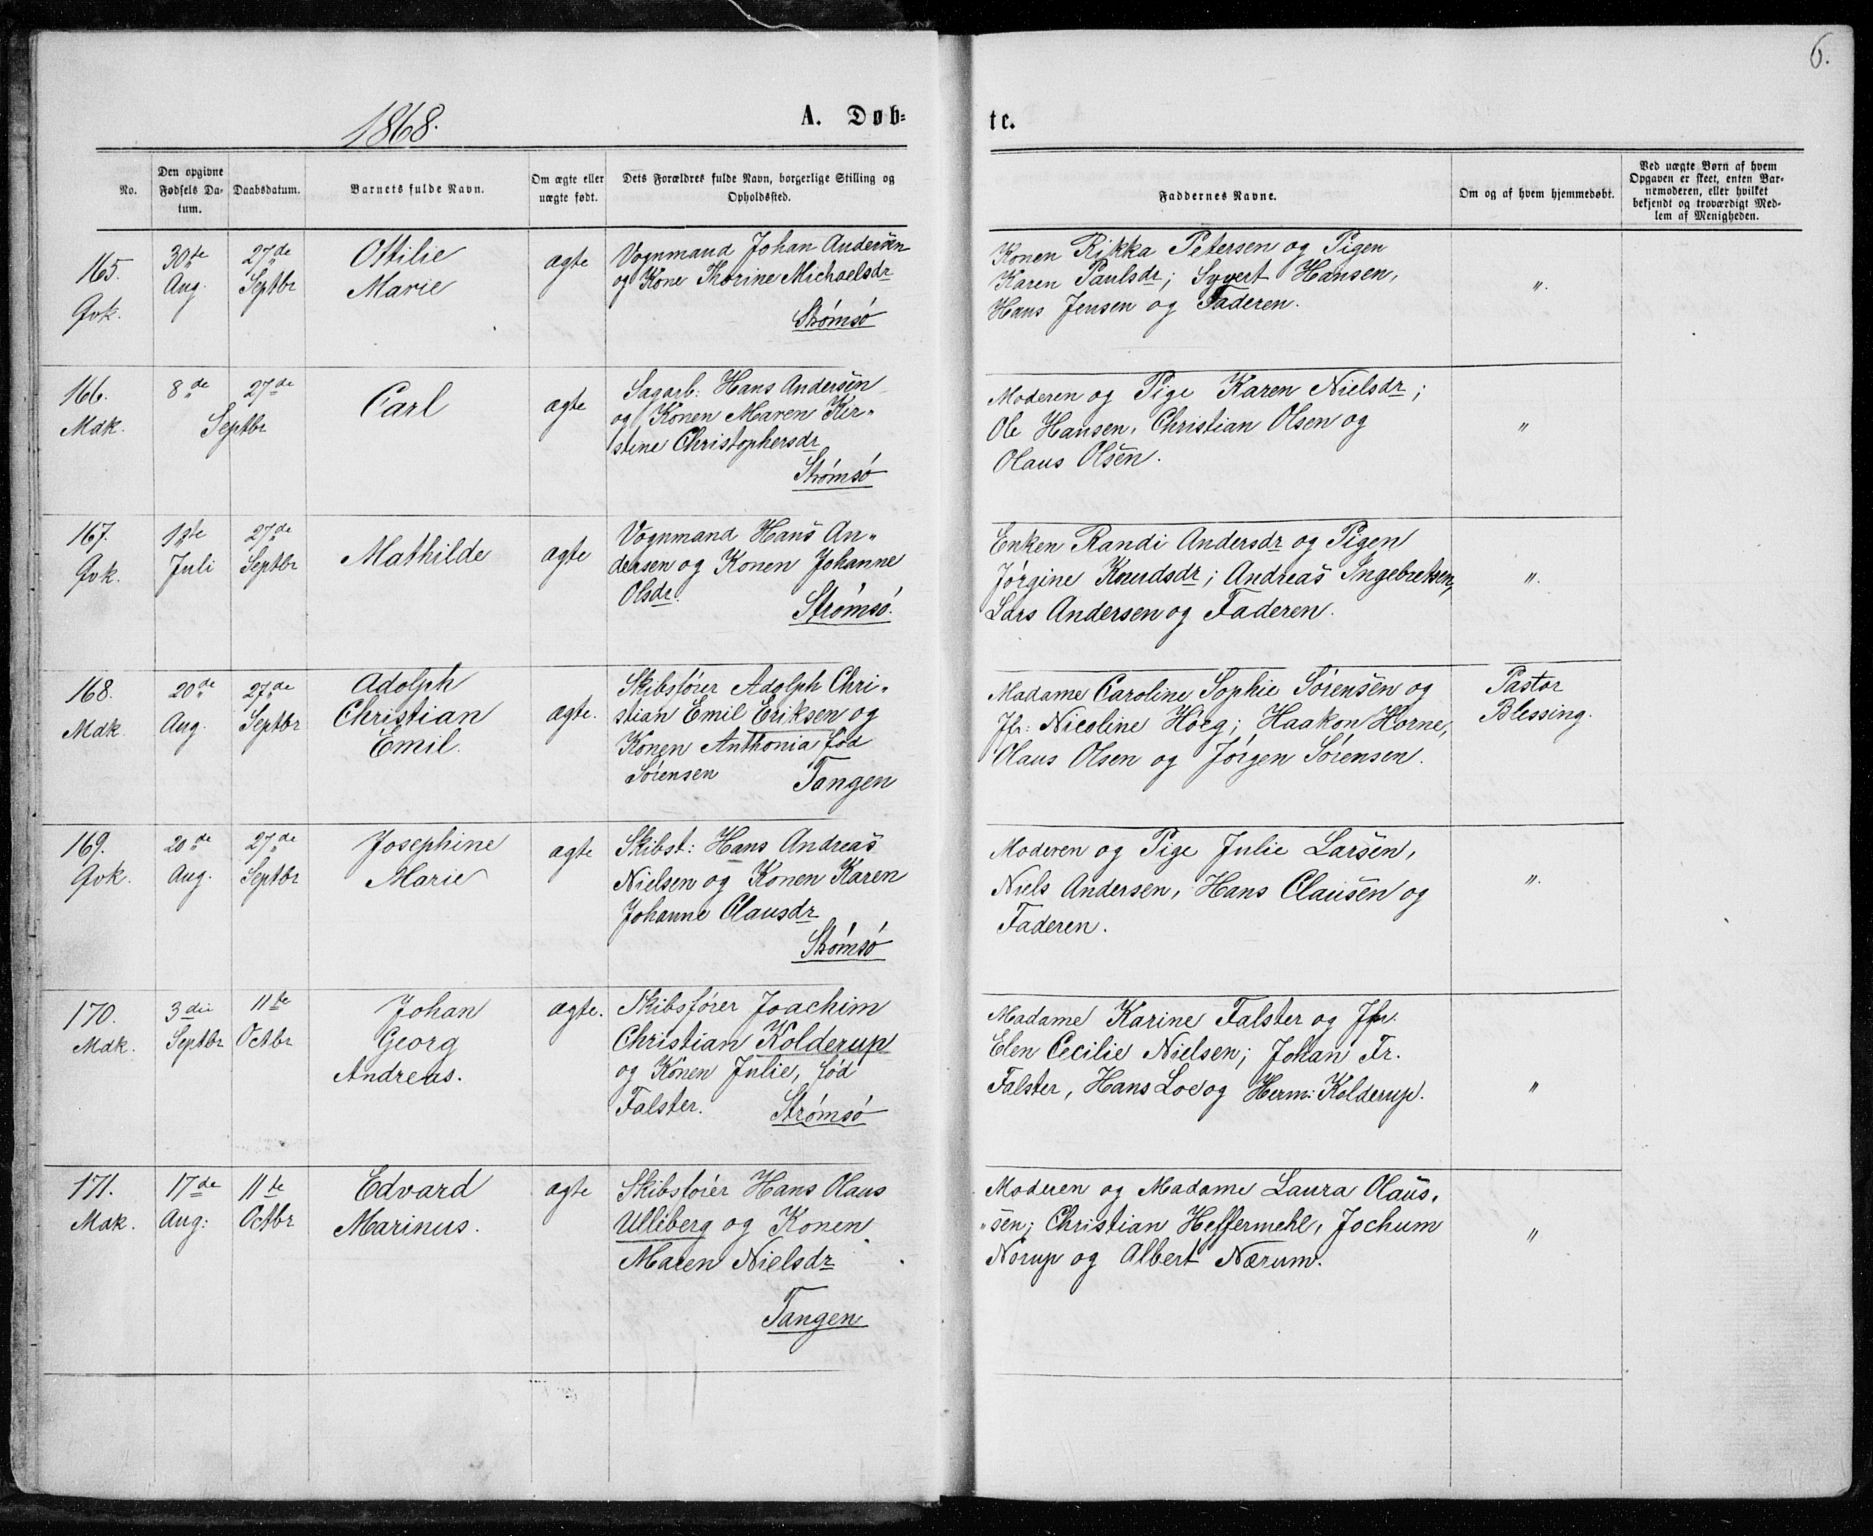 6.
1868.
A. Døb=
te.
No.
Den opgivne
Fødsels Da-
tum.
Daabsdatum.
Barnets fulde Navn.
Om ægte eller
uægte født.
Dets Forældres fulde Navn, borgerlige Stilling og
Opholdssted.
Faddernes Navne.
Om og af hvem hjemmedøbt.
Ved uægte Børn af hvem
Opgaven er skeet, enten Bar-
nemoderen, eller hvilket
bekjendt og troværdigt Med-
lem af Menigheden.
165.
Qvk.
30te
Aug.
27de
Septbr
Ottilie
Marie
ægte
Vognmand Johan Andersen
og Kone Thorine Michaelsdr
Strømsø
Konen Rikka Petersen og Pigen
Karen Paulsdr; Syvert Hansen,
Hans Jensen og Faderen.
".
166.
Mdk.
8de
27de
Septbr
Carl
ægte
Sagarb: Hans Andersen
og Konen Maren Kir-
stine Christophersdr
Strømsø
Moderen og Pige Karen Nielsdr;
Ole Hansen, Christian Olsen og
Olaus Olsen.
"
167.
Qvk.
Juli
27de
Septbr
Mathilde
ægte
Vognmand Hans An-
dersen og Konen Johanne
Olsdr.
Strømsø.
Enken Randi Andersdr og Pigen
Jørgine Knudsdr; Andreas Ingebretsen,
Lars Andersen og Faderen.
".
168.
Mdk.
20de
Aug.
27de
Septbr
Adolph
Christian
Emil.
ægte.
Skibsfører Adolph Chri-
stian Emil Eriksen og
Konen Anthonia, fød
Sørensen
Tangen
Madame Caroline Sophie Sørensen og
Jfr: Nicoline Høeg; Haakon Horne,
Olaus Olsen og Jørgen Sørensen.
Pastor
Blessing.
169.
Qvk.
20de
Aug.
27de
Septbr
Josephine
Marie
ægte
Skibst: Hans Andreas
Nielsen og Konen Karen
Johanne Clausdr
Strømsø
Moderen og Pige Julie Larsen,
Niels Andersen, Hans Clausen og
Faderen.
".
170.
Mdk.
3die
Septbr
11te
Octbr
Johan
Georg
Andreas.
ægte.
Skibsfører Joachim
Christian Kolderup
og Konen Julie, fød
Falster.
Strømsø
Madame Karine Falster og Jfr.
Elen Cecilie Nielsen; Johan Fr.
Falster, Hans Loe og Herm: Kolderup.
"
171.
Mdk.
17de
Aug:
11te
Octbr
Edvard
Marinus.
ægte
Skibsfører Hans Olaus
Ulleberg og Konen
Maren Nielsdr
Tangen
Moderen og Madame Laura Olaus-
sen; Christian Heffermehl, Jochum
Norup og Albert Nærum.
"